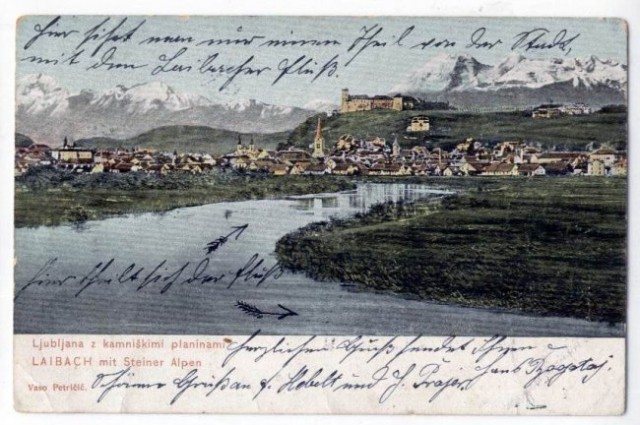 hier sieht man nur einen Theil von der Stadt,
mit dem Laibacher Fluß.
hier theilt sich der Fluß
Ljubljana z kamniškimi planinami
LAIBACH mit Steiner Alpen
herzlichen Gruß sendet Ihnen
Vaso Petričič.
Schöne Grüße an f. und J.
Hans